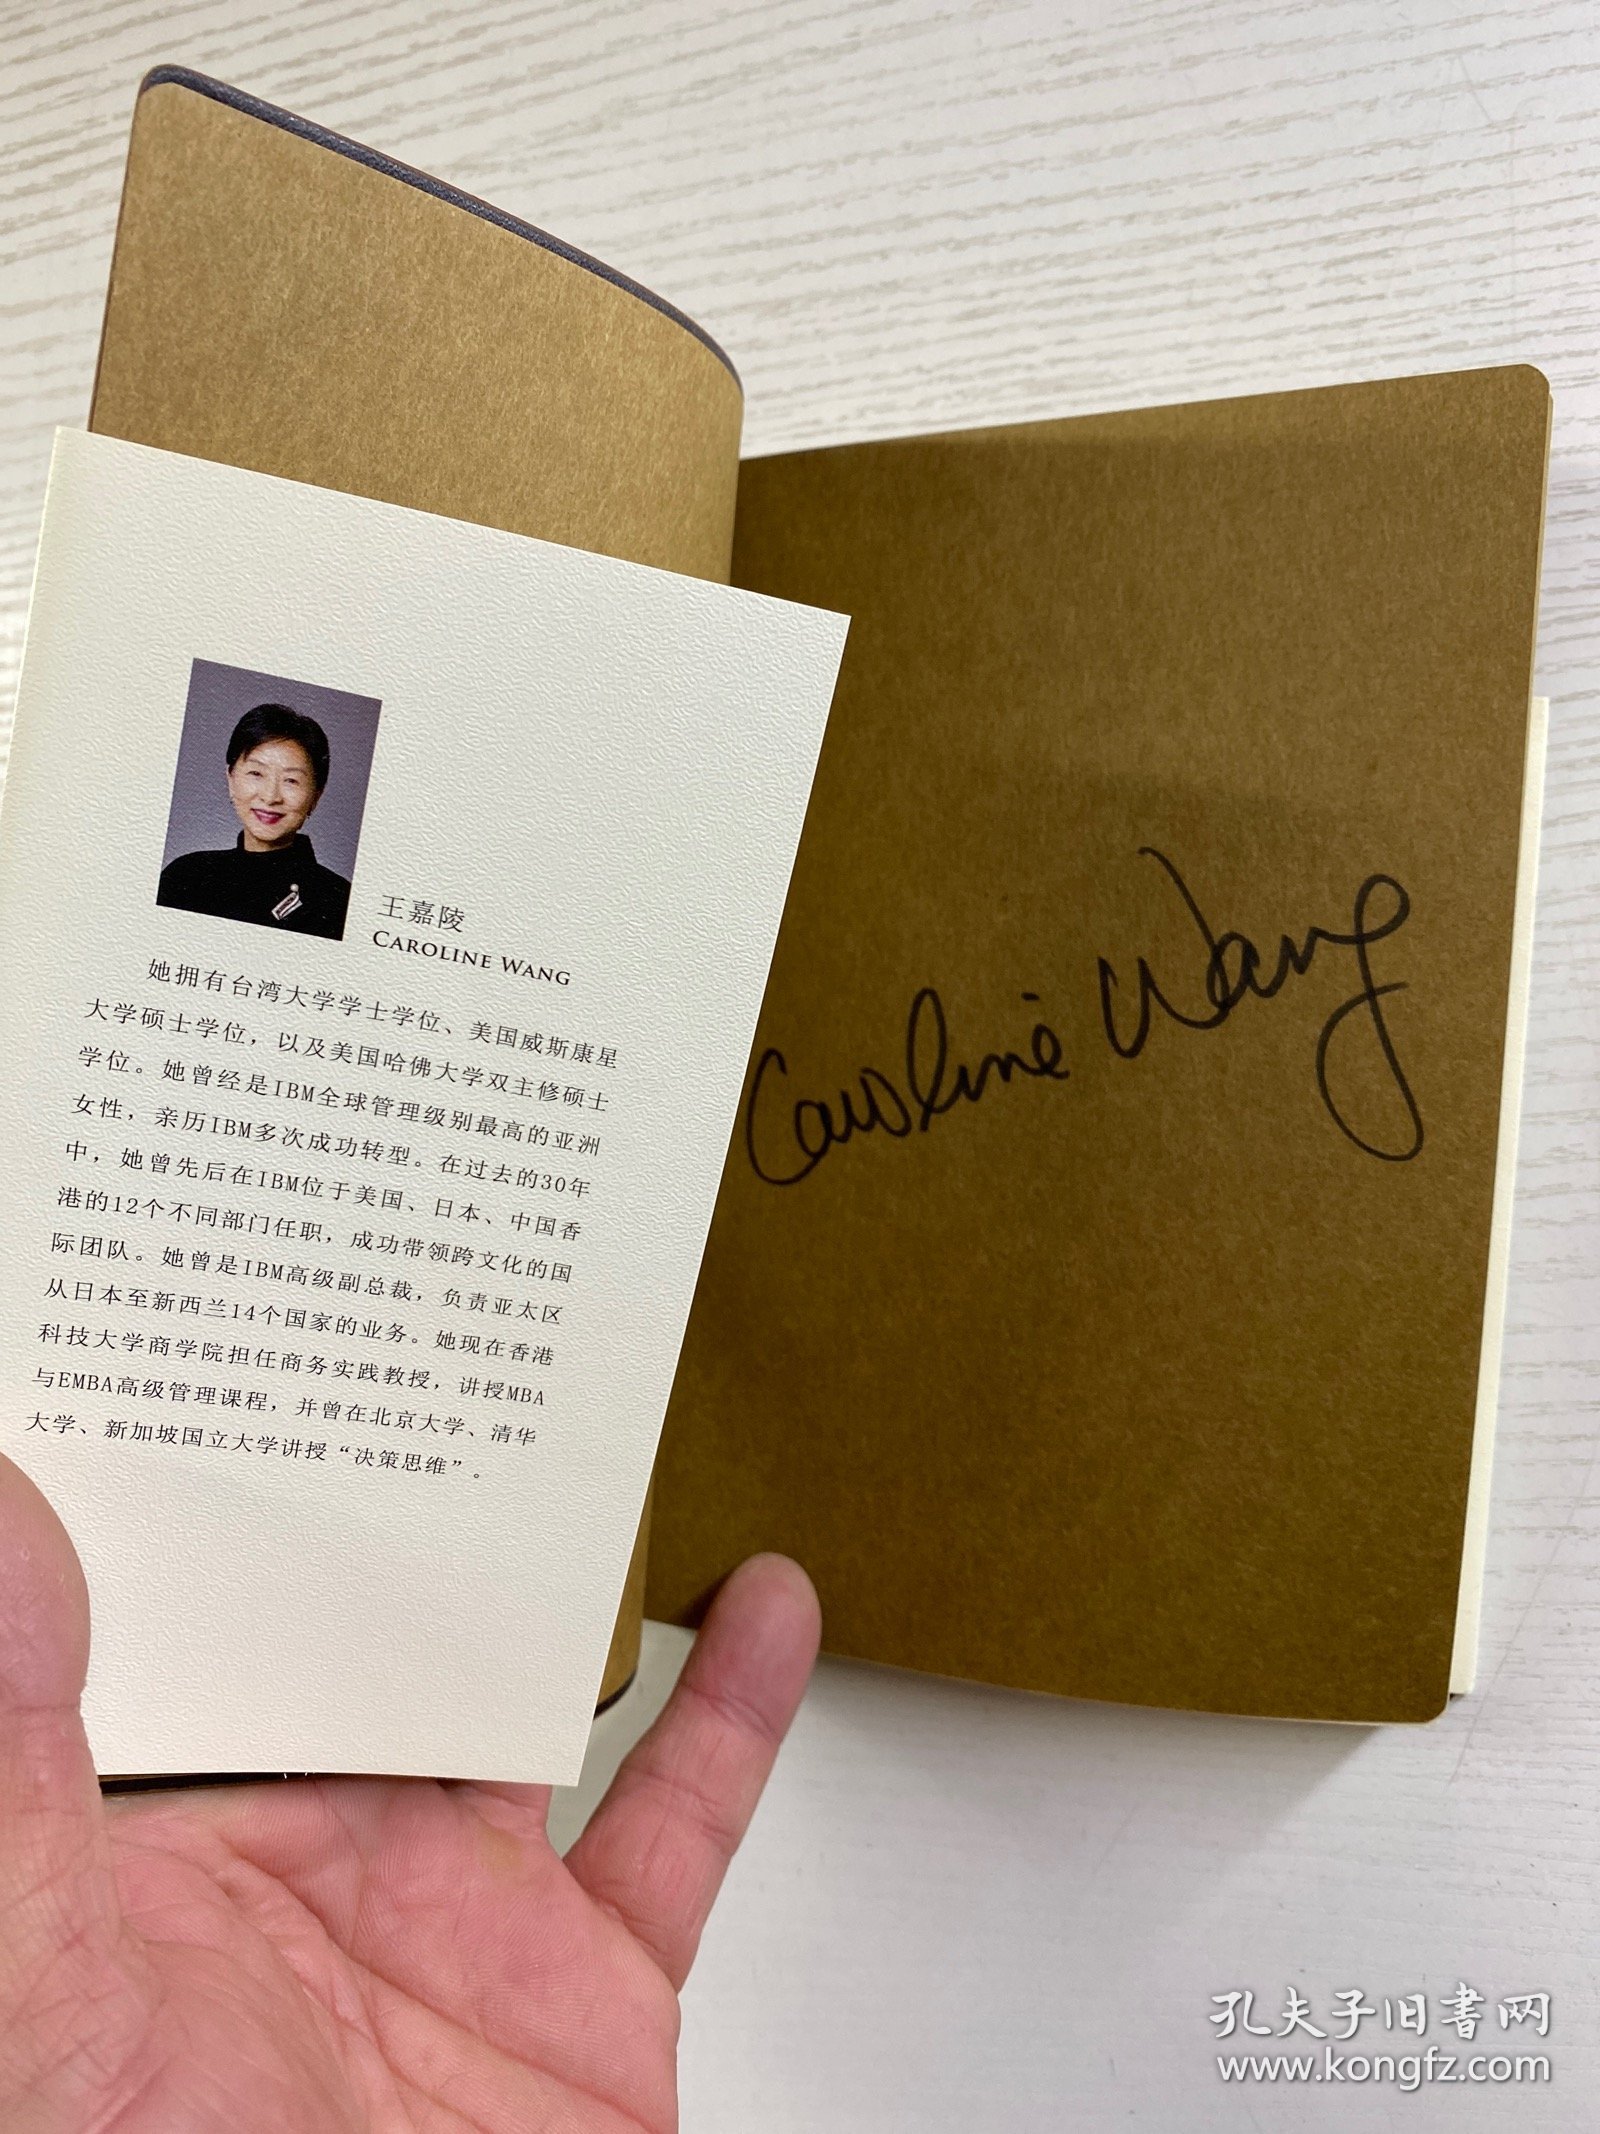 王嘉陵
CAROLINE WANG
她拥有台湾大学学士学位、美国威斯康星
大学硕士学位，以及美国哈佛大学双主修硕士
学位。她曾经是IBM全球管理级别最高的亚洲
女性，亲历IBM多次成功转型。在过去的30年
中，她曾先后在IBM位于美国、日本、中国香
港的12个不同部门任职，成功带领跨文化的国
际团队。她曾是IBM高级副总裁，负责亚太区
从日本至新西兰14个国家的业务。她现在香港
科技大学商学院担任商务实践教授，讲授MBA
与EMBA高级管理课程，并曾在北京大学、清华
大学、新加坡国立大学讲授“决策思维”。
Caroline Wang
孔夫子旧书网
www.kongfz.com